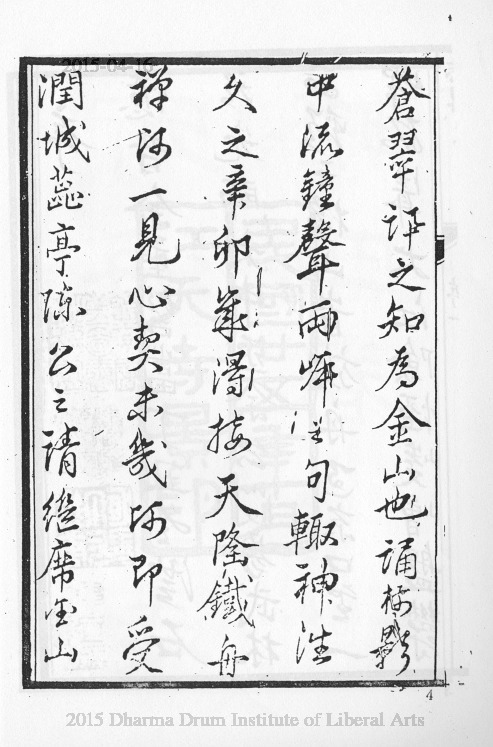 2015-04-16
蒼翠訊之知為金山也誦樹影
中流鐘聲兩岸之句輒神往
久之辛卯歲得接天隆鐵舟
禪師一見心契未幾師即受
潤城蕋亭陳公之請繼席金山
4
2015 Dharma Drum Institute of Liberal Arts